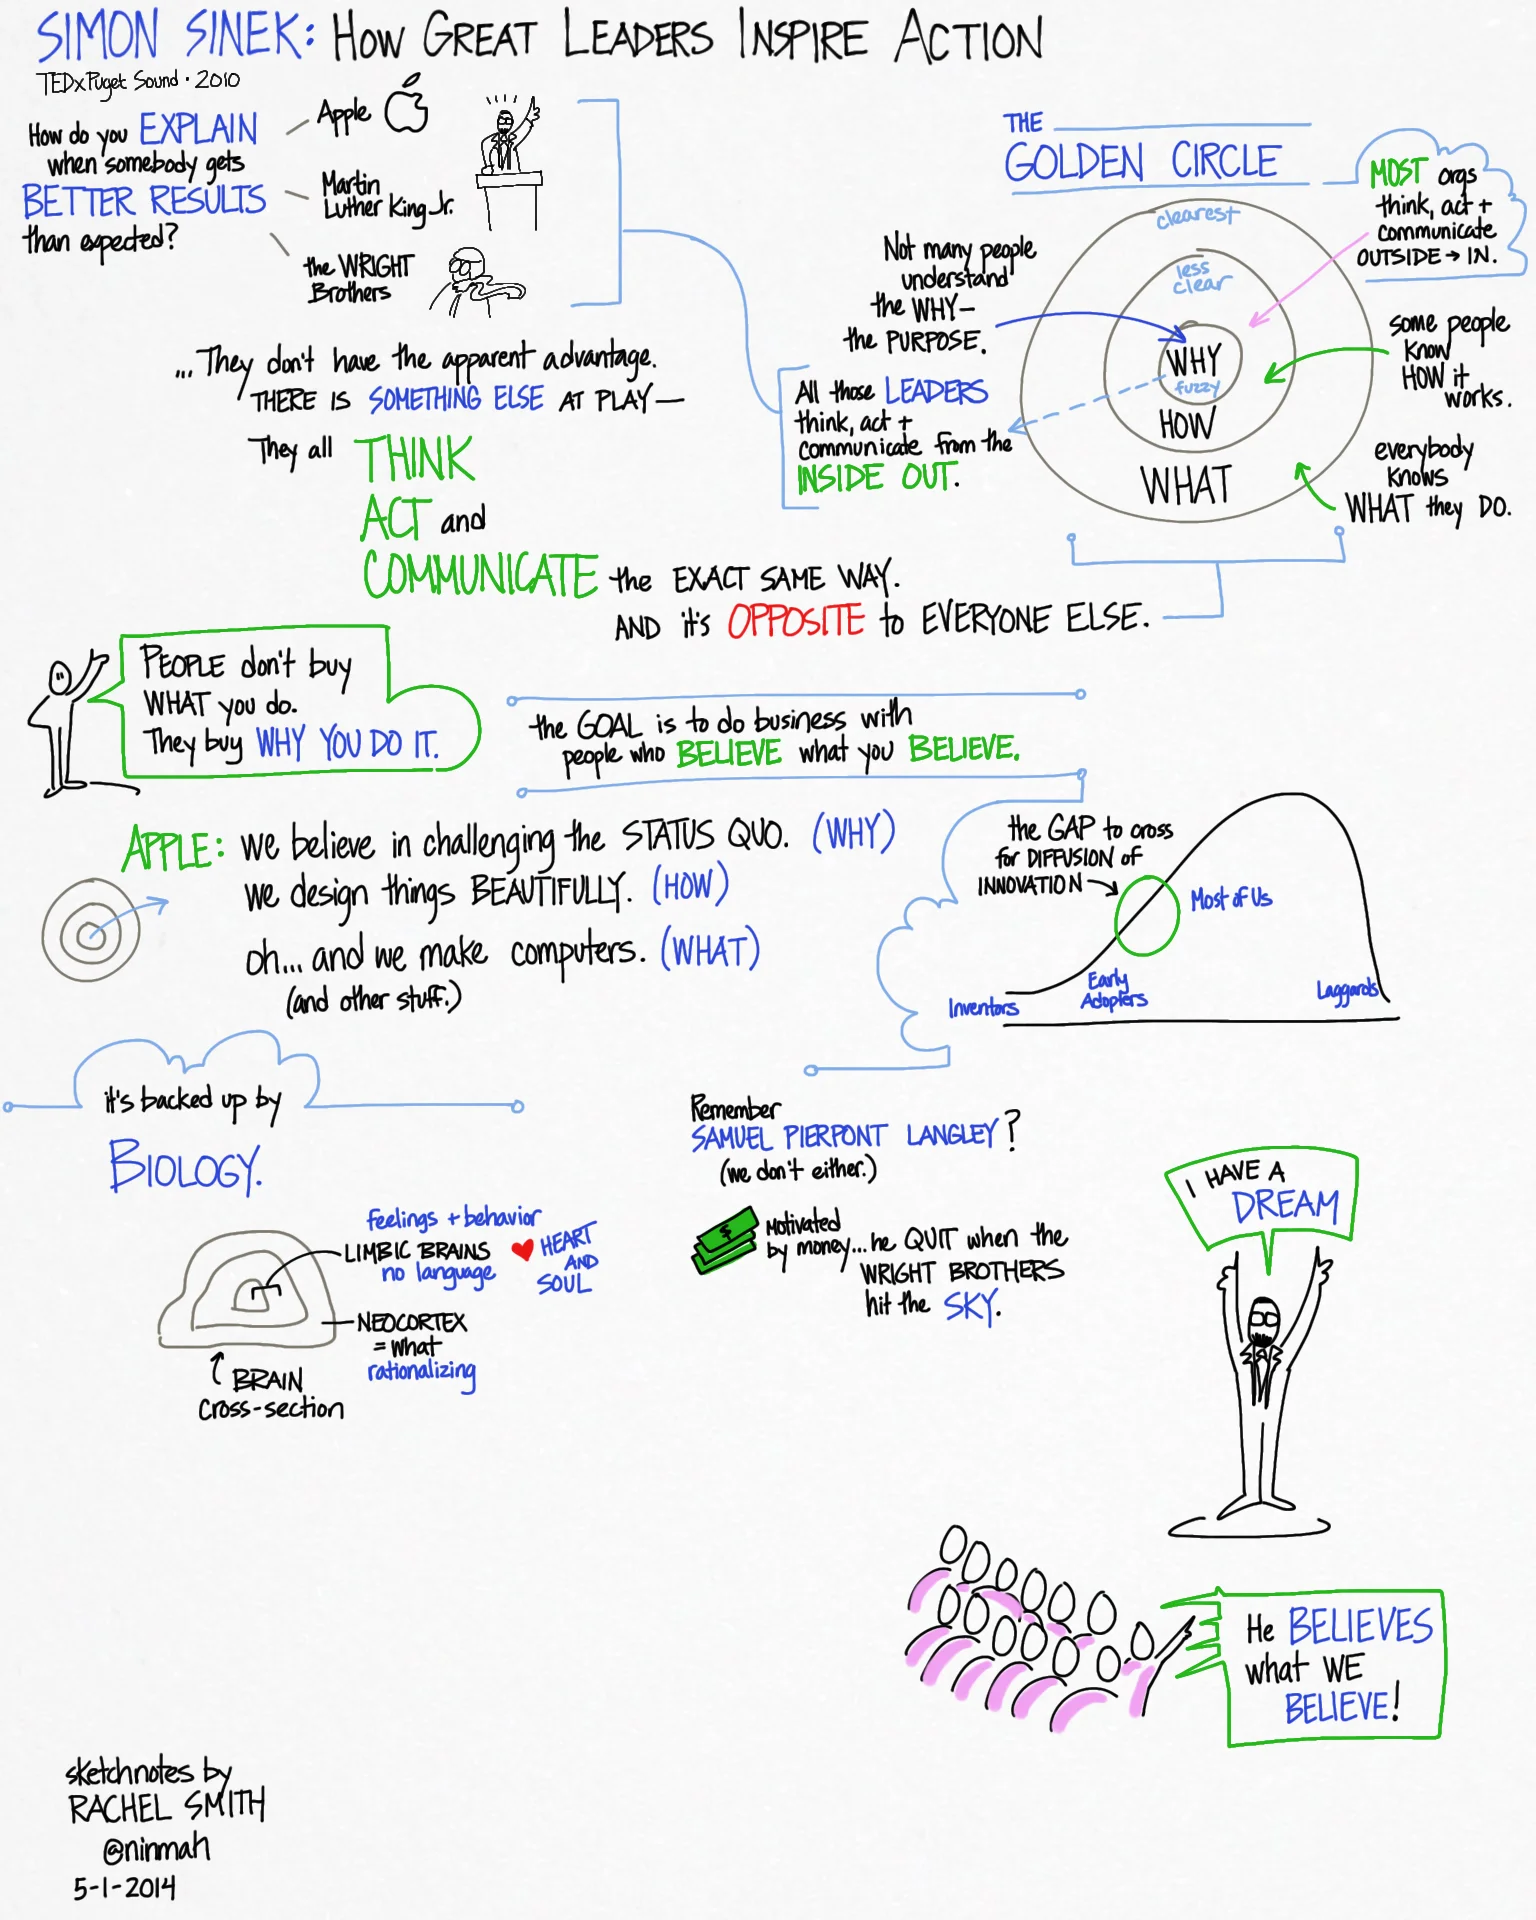 SIMON SINEK: HOW GREAT LEADERS INSPIRE ACTION
TEDxPuget Sound · 2010
How do you EXPLAIN
when somebody gets
BETTER RESULTS
than expected?
Apple
Martin
Luther King Jr.
the WRIGHT
Brothers
...They don't have the apparent advantage.
THERE IS SOMETHING ELSE AT PLAY—
They all THINK
ACT and
COMMUNICATE the EXACT SAME WAY.
AND it's OPPOSITE to EVERYONE ELSE.
THE
GOLDEN CIRCLE
MOST orgs
think, act +
communicate
OUTSIDE → IN.
Not many people
understand
the WHY—
the PURPOSE.
All those LEADERS
think, act +
communicate from the
INSIDE OUT.
clearest
less
clear
WHY
fuzzy
HOW
WHAT
some people
know
HOW it
works.
everybody
knows
WHAT they DO.
PEOPLE don't buy
WHAT you do.
They buy WHY YOU DO IT.
the GOAL is to do business with
people who BELIEVE what you BELIEVE.
APPLE: we believe in challenging the STATUS QUO. (WHY)
we design things BEAUTIFULLY. (HOW)
oh... and we make computers. (WHAT)
(and other stuff.)
the GAP to cross
for DIFFUSION of
INNOVATION
Most of Us
Inventors
Early
Adopters
Laggards
it's backed up by
BIOLOGY.
feelings + behavior
LIMBIC BRAINS
no language
HEART
AND
SOUL
NEOCORTEX
= what
rationalizing
BRAIN
cross-section
Remember
SAMUEL PIERPONT LANGLEY?
(we don't either.)
$
Motivated
by money... he QUIT when the
WRIGHT BROTHERS
hit the SKY.
I HAVE A
DREAM
He BELIEVES
what WE
BELIEVE!
sketchnotes by
RACHEL SMITH
@ninmah
5-1-2014